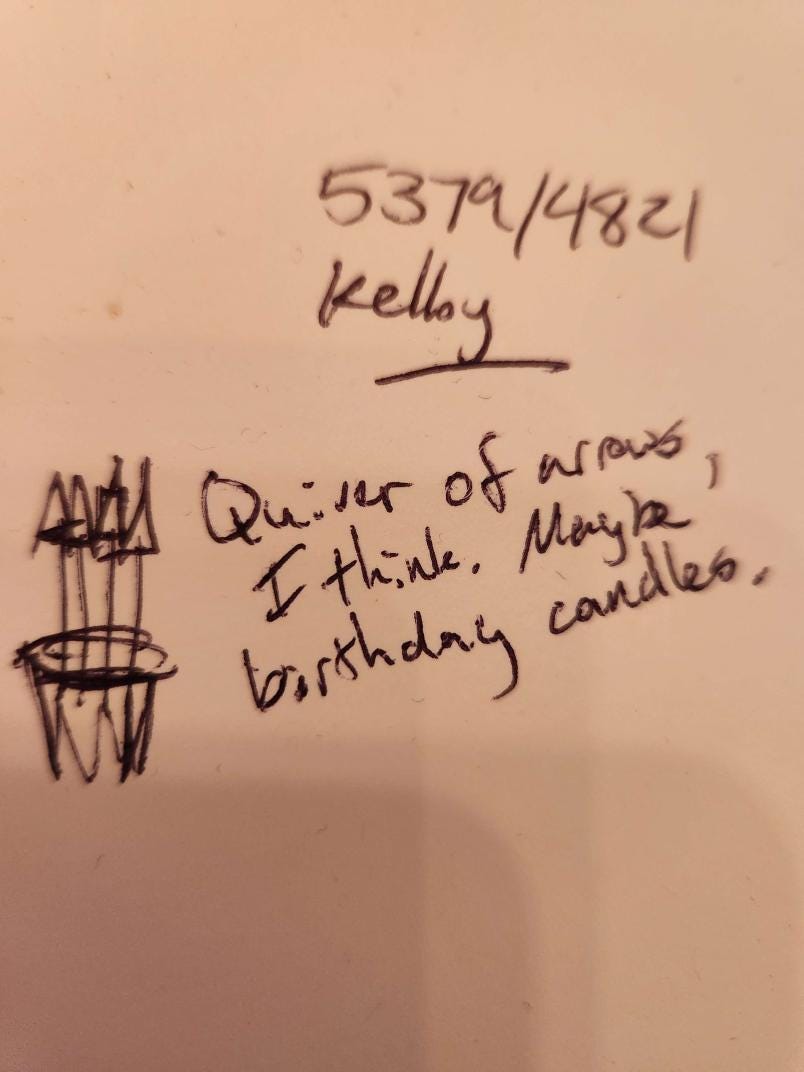 5379/4821
Kelby
Quiver of arrows,
I think. Maybe
birthday candles.